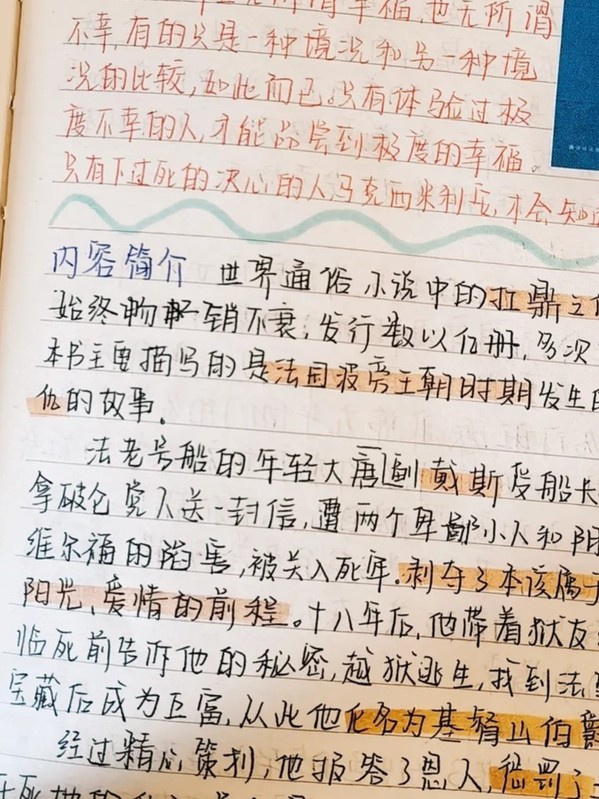 无所谓幸福,也无所谓
不幸,有的只是一种境况和另一种境
况的比较,如此而已。只有体验过极
度不幸的人,才能品尝到极度的幸福。
只有下过死的决心的人,马克西米利安,才会知道
内容简介 世界通俗小说中的扛鼎之作
始终畅销不衰,发行数以亿册,多次
本书主要描写的是法国波旁王朝时期发生的
仇的故事。
法老号船的年轻大副唐戴斯受船长
拿破仑党人送一封信,遭两个卑鄙小人和阴
维尔福的陷害,被关入死牢。剥夺了本该属于
阳光、爱情的前程。十八年后,他带着狱友
临死前告诉他的秘密,越狱逃生,找到
宝藏后成为巨富,从此他化名为基督山伯爵
经过精心策划,他报答了恩人,惩罚了